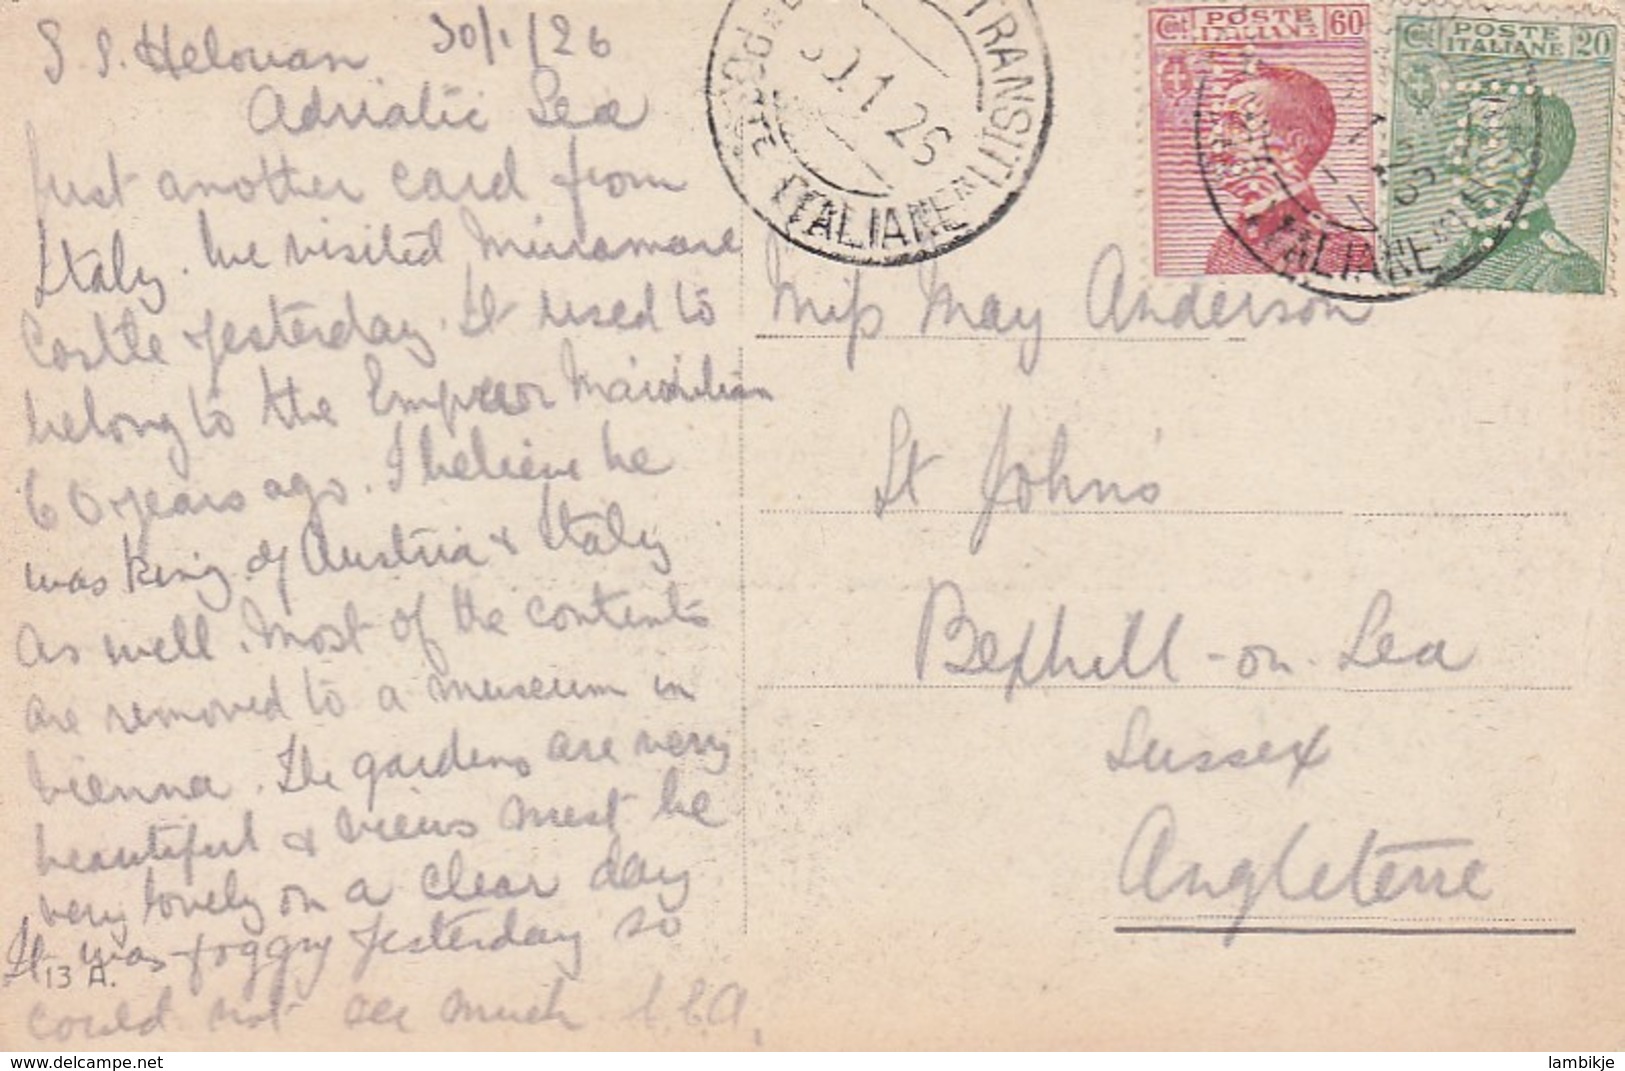 S. S. Helouan 30/1/26
Adriatic Sea
Just another card from
Italy. We visited Miramare
Castle yesterday. It used to
belong to the Emperor Maximilian
60 years ago. I believe he
was King of Austria & Italy
as well. Most of the contents
are removed to a museum in
Vienna. The gardens are very
beautiful & views must be
very lovely on a clear day
It was foggy yesterday so
could not see much
13 A.
TRANSITI
POSTE ITALIANE
30.1.26
Cent POSTE 60
ITALIANE
Cent POSTE 20
ITALIANE
ITALIANE
Miss May Anderson
St John's
Bexhill-on-Sea
Sussex
Angleterre
lambikje